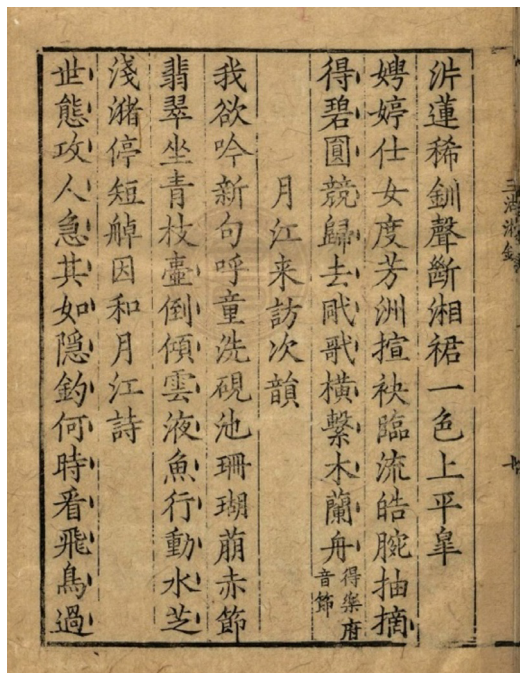 泮蓮稀釧聲斷湘裙一色上平皐
娉婷仕女度芳洲揎袂臨流皓腕抽摘
得碧圓競歸去戙歌橫繫木蘭舟得樂府音節
月江来訪次韻
我欲吟新句呼童洗硯池珊瑚萠赤節
翡翠坐青枝壺倒傾雲液魚行動水芝
淺潴停短艇因和月江詩
世態攻人急其如隱釣何時看飛鳥過